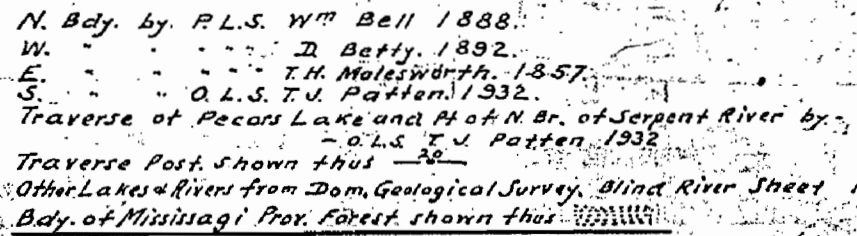 N. Bdy. by. P.L.S. Wm Bell 1888.
W. " " " " " D. Betty. 1892.
E. " " " " " T.H. Molesworth. 1857.
S. " " O.L.S. T.J. Patten. 1932.
Traverse of Pecors Lake and Pt of N. Br. of Serpent River by.
- O.L.S. T. J. Patten 1932
Traverse Post. shown thus 20
Other Lakes & Rivers from Dom. Geological Survey, Blind River Sheet
Bdy. of Mississagi Prov. Forest shown thus